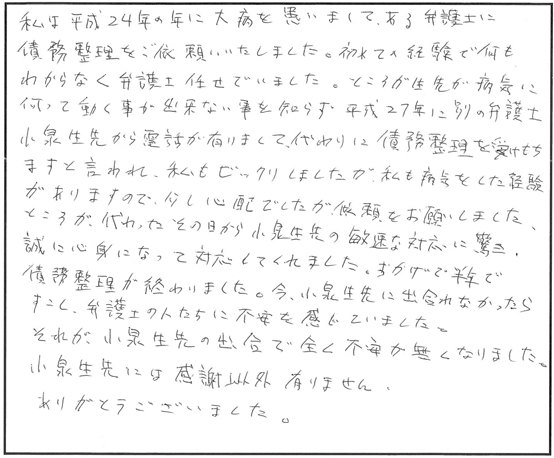 私は平成24年の年に大病を患いまして、ある弁護士に
債務整理をご依頼いたしました。初めての経験で何も
わからなく弁護士任せでいました。ところが生先が病気に
何って動く事が出来ない事を知らず平成27年に別の弁護士
小泉生先から電話が有りまして、代わりに債務整理を受けもち
ますと言われ、私もビックリしましたが、私も病気をした経験
がありますので、少し心配でしたが依頼をお願いしました、
ところが、代わったその日から小泉生先の敏速な対応に驚き、
誠に心身になって対応してくれました。おかげで半年で
債務整理が終わりました。今、小泉生先に出合れなかったら
すこし、弁護士の人たちに不安を感じていました。
それが、小泉生先の出合で全く不安が無くなりました。
小泉生先には感謝以外有りません、
ありがとうございました。